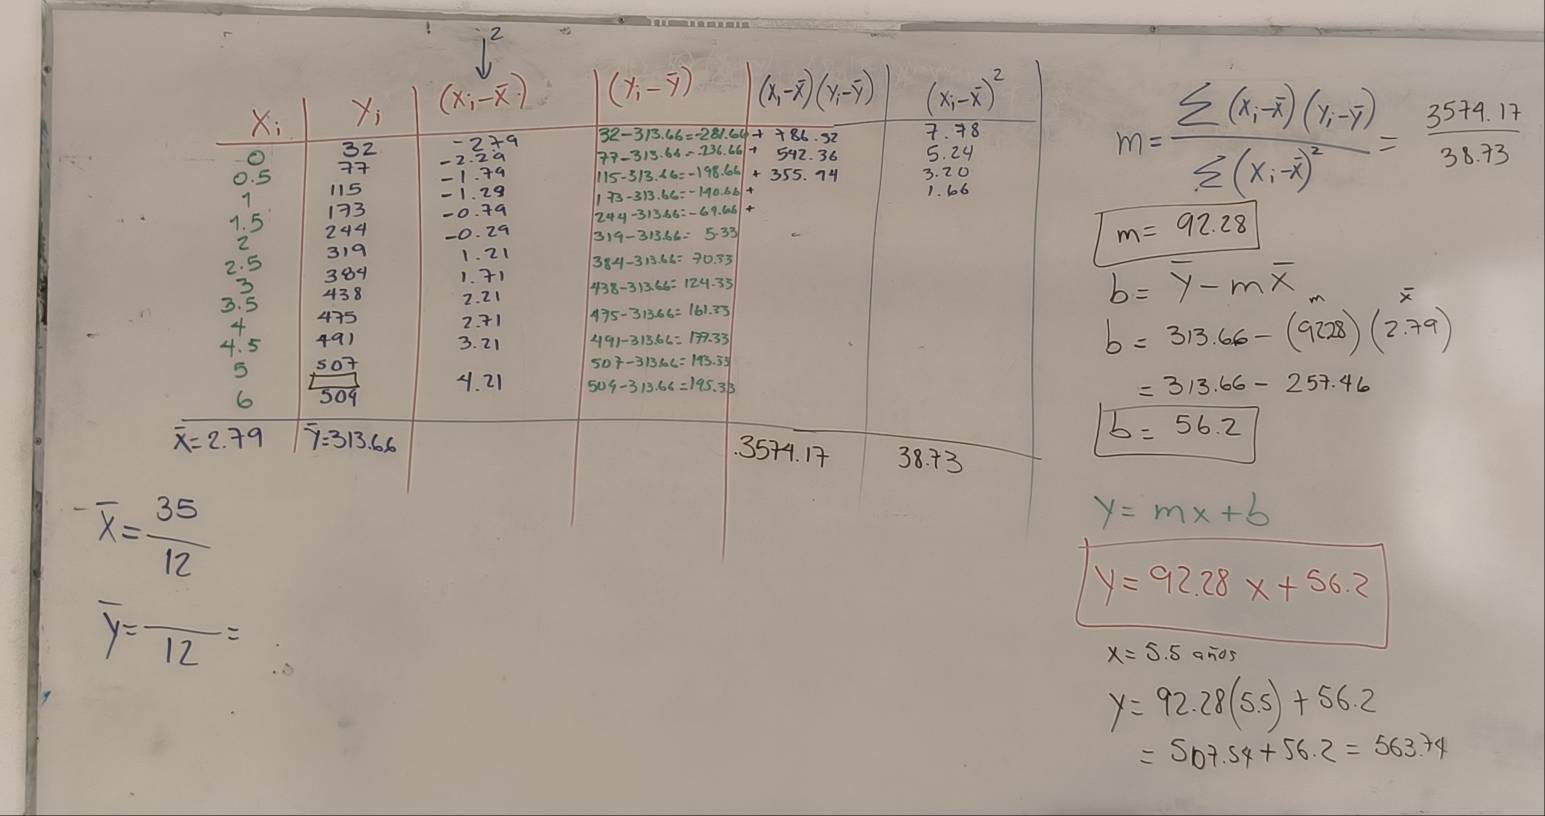 2
Xi | Yi | (Xi-X̄) | (Yi-Ȳ) | (Xi-X̄)(Yi-Ȳ) | (Xi-X̄)²
0 | 32 | -2.79 | 32-313.66=-281.66 | + 786.52 | 7.78
0.5 | 77 | -2.29 | 77-313.66=-236.66 | + 542.36 | 5.24
1 | 115 | -1.79 | 115-313.66=-198.66 | + 355.94 | 3.20
1.5 | 173 | -1.29 | 173-313.66=-140.66 | + | 1.66
2 | 244 | -0.79 | 244-313.66=-69.66 | +
2.5 | 319 | -0.29 | 319-313.66= 5.33
3 | 384 | 1.21 | 384-313.66= 70.33
3.5 | 438 | 1.71 | 438-313.66= 124.33
4 | 475 | 2.21 | 475-313.66= 161.33
4.5 | 491 | 2.71 | 491-313.66= 177.33
5 | 507 | 3.21 | 507-313.66= 193.33
6 | 509 | 4.21 | 509-313.66=195.33
X̄=2.79 | Ȳ=313.66 | 3574.17 | 38.73
X̄= 35/12
Ȳ= /12 =
m= Σ(Xi-X̄)(Yi-Ȳ) / Σ(Xi-X̄)² = 3574.17 / 38.73
m= 92.28
b= Ȳ-mX̄
m X̄
b= 313.66-(92.28)(2.79)
= 313.66 - 257.46
b= 56.2
Y= mx+b
Y= 92.28 x + 56.2
x= 5.5 años
Y= 92.28(5.5)+56.2
= 507.54+56.2 = 563.74